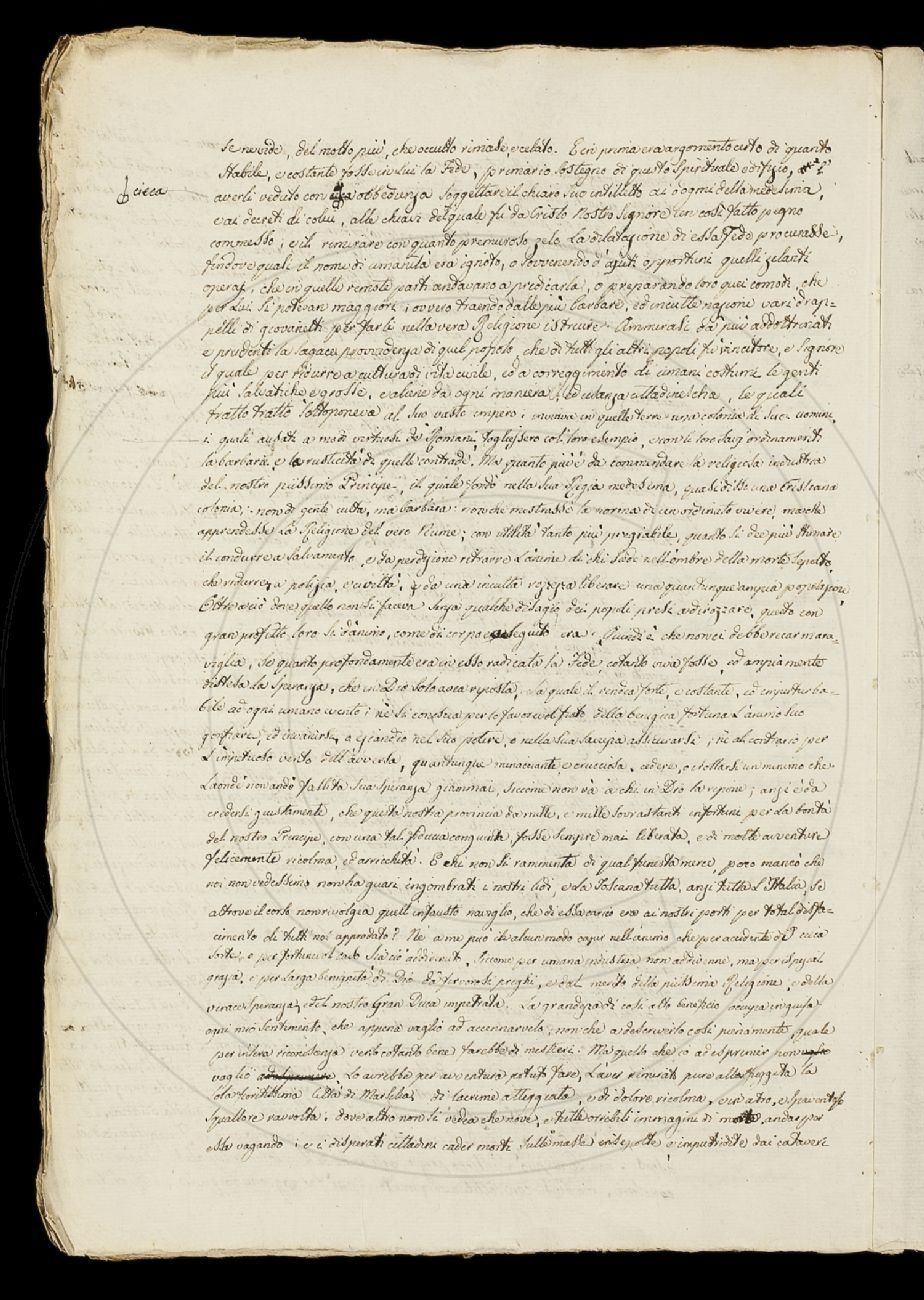 se ne vide, del molto più, che occulto rimase, e celato. E in prima era argomento certo di quanto
stabile, e costante fosse in lui la Fede, primario sostegno di questo spirituale edifizio,
cieca
averli veduto con obbedienza soggettare il chiaro suo intelletto ai dogmi della medesima,
e ai decreti di colui, alle chiavi del quale fu da Cristo Nostro Signore un così fatto pegno
commesso; e il rimirare con quanto premuroso zelo la dilatazione di essa Fede procurasse,
fin dove quasi il nome di umanità era ignoto, o sovvenendo d'ajuti opportuni quelli zelanti
operaj, che in quelle remote parti andavano a predicarla, o preparando loro quei comodi, che
per lui si potevan maggiori; ovvero traendo dalle più barbare, ed inculte nazioni vari drap-
pelli di giovanetti per farli nella vera Religione istruire. Ammirasi da' più addottrinati
e prudenti la sagace provvidenza di quel popolo, che di tutti gli altri popoli fu vincitore, e Signore
il quale per ridurre a cultura di vita civile, ed a correggimento di umani costumi le genti
più salvatiche e grosse, e aliene da ogni maniera di usanza cittadinescha, le quali
tratto tratto sottoponeva al suo vasto impero; inviava in quelle terre una colonia di suoi uomini
i quali ausati a modi virtuosi de' Romani, togliessero col loro esempio, e con li loro saggi ordinamenti
la barbarie e la rusticità di quelle contrade. Ma quanto più è da commendare la religiosa industria
del nostro piissimo Principe, il quale fondò nella sua Regia medesima, quasi dissi una Cristiana
colonia; non di gente culta, ma barbara: non che mostrasse la norma di un ordinato vivere, ma che
apprendesse la Religione del vero Nume; con utilità tanto più pregiabile, quanto si dee più stimare
il condurre a salvamento, e da perdizione ritrarre l'anime di chi siede nell'ombre della morte sepolto,
che ridurre a polizia, e civiltà, e da una inculta rozzezza liberare una quantunque ampia popolazione,
Oltre a ciò dove quello non si faceva senza qualche disagio dei popoli presi a dirozzare, questo con
gran profitto loro sì d'animo, come di corpo eseguito era. Quindi è che non ci debbe recar mara-
viglia, se quanto profondamente era in esso radicata la Fede, cotanto viva fosse, ed ampiamente
distesa la Speranza, che in Dio solo avea riposta; la quale il rendea forte, e costante, ed imperturba-
bile ad ogni umano evento; nè si conoscea per lo favorevol fiato della benigna fortuna l'animo suo
gonfiare, ed invanirsi, o eziandio nel suo potere, o nella sua saviezza assicurarsi; nè al contrario per
l'impetuoso vento dell'avversa, quantunque minacciante e crucciosa, cedere, o crollarsi un minimo che
Laonde non andò fallita sua speranza giammai, siccome non va a chi in Dio la ripone; anzi è da
credersi giustamente, che questa nostra provincia da mille, e mille sovrastanti infortuni per la bontà
del nostro Principe, con una tal fiducia congiunta, fosse sempre mai liberata, e di molte avventure
felicemente ricolma, ed arricchita. E chi non si rammenta di qual funesta merce, poco mancò che
noi non vedessimo non ha guari, ingombrati i nostri lidi, e la Toscana tutta, anzi tutta l'Italia, se
altrove il corso non rivolgea quell'infausto naviglio, che di essa carco era ai nostri porti per total disfa-
cimento di tutti noi approdato? Nè a me può in alcun modo capir nell'animo che per accidente di cieca
sorte, o per fortuito caso sia ciò addivenuto, siccome per umana industria non addivenne, ma per ispezial
grazia, e per larga benignità di Dio da fervorosi preghi, e dal merito della piissima Religione, e della
verace speranza del nostro Gran Duca impetrata. La grandezza di così alto beneficio occupa in guisa
ogni mio sentimento, che appena vaglio ad accennarvelo; non che a descriverlo così pienamente, quale
per intera riconoscenza verso cotanto bene farebbe di mestieri: Ma quello che io ad esprimer non
vaglio Lo avrebbe per avventura potuto fare, l'aver rimirata pure alla sfuggita la
già floritissima Città di Marsilia, di lacrime allagata, e di dolore ricolma, e in atro, e spaventoso
squallore ravvolta: dove altro non si vedea che nove, e tutte orribili immagini di morte andare per
essa vagando; e i disperati cittadini cader morti sulle masse insepolte e imputridite dai cadaveri